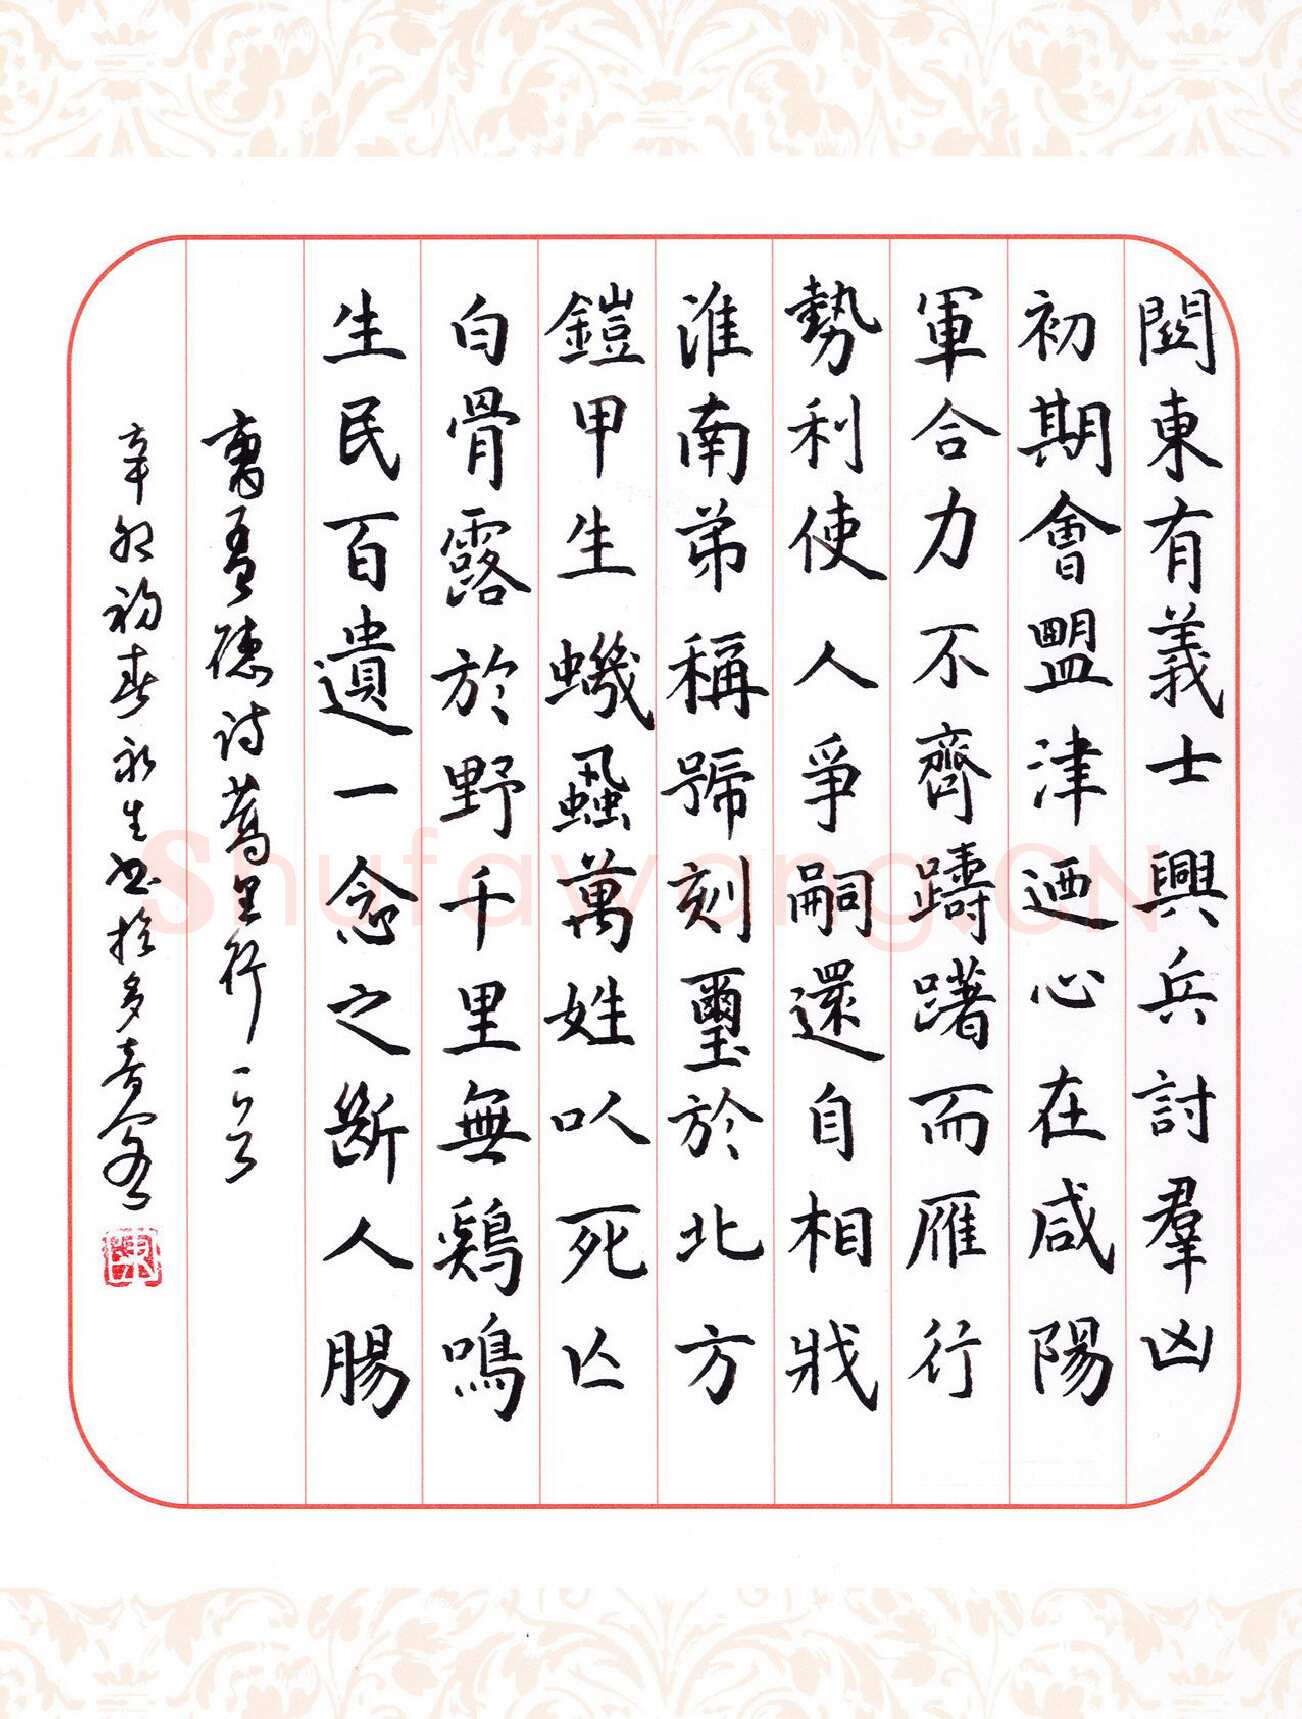 關東有義士興兵討羣凶
初期會盟津迺心在咸陽
軍合力不齊躊躇而雁行
勢利使人爭嗣還自相戕
淮南弟稱號刻璽於北方
鎧甲生蟣蝨萬姓以死亡
白骨露於野千里無鷄鳴
生民百遺一念之斷人腸
曹孟德詩蒿里行一首
辛卯初春永生书於多
Shufawang.CN